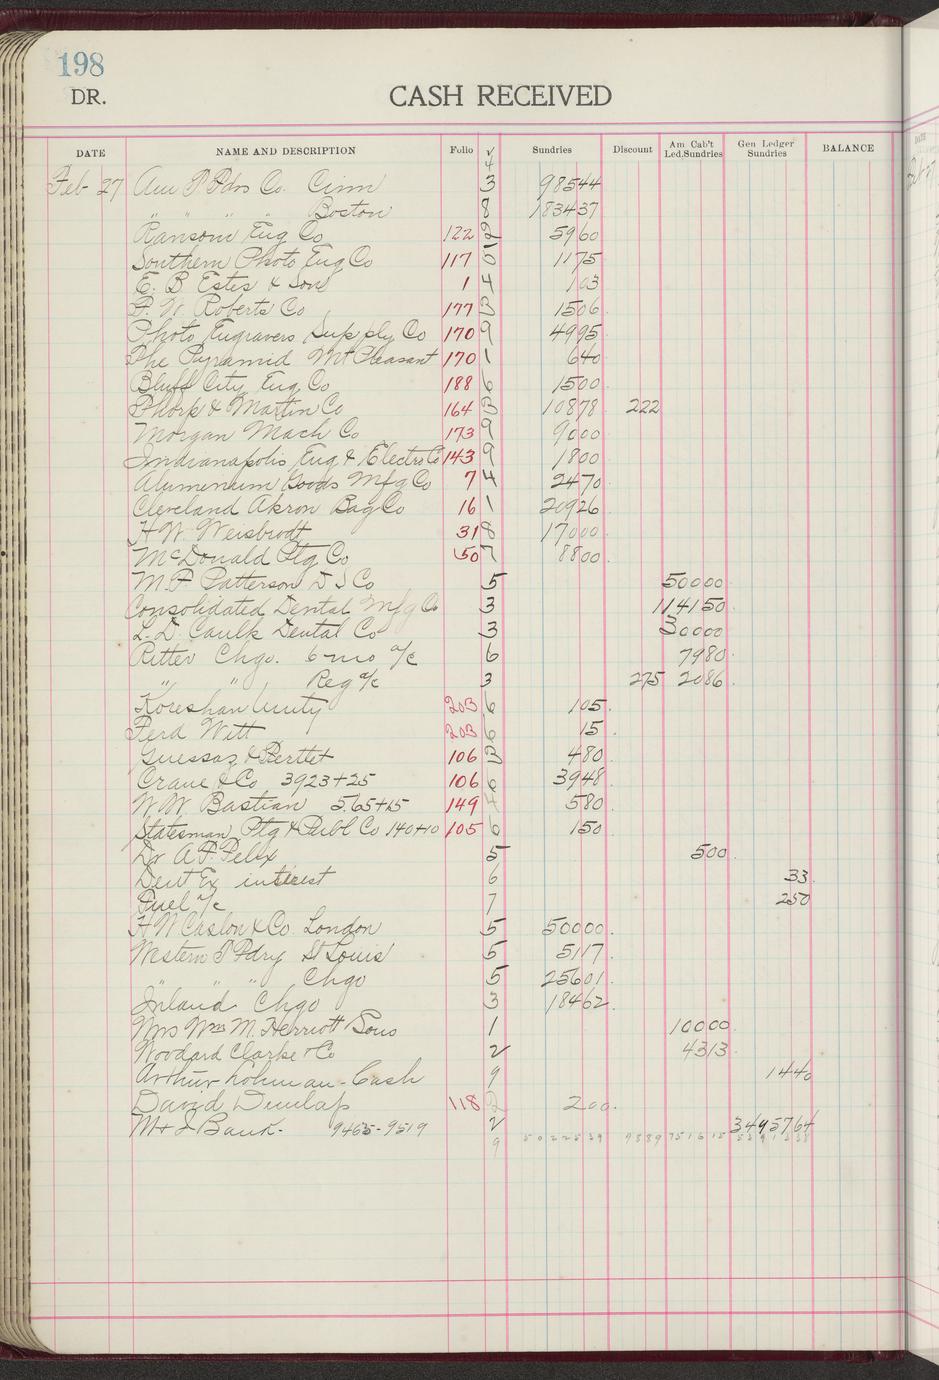 198
DR. CASH RECEIVED
DATE NAME AND DESCRIPTION Folio Sundries Discount Am Cab't Led. Sundries Gen Ledger Sundries BALANCE
4
Feb 27 Am T Fdrs Co. Cinn 3 98544
" " " Boston 8 183437
Ransom Eng Co 122 2 5960
Southern Photo Eng Co 117 0 1175
E. B Estes & Son 1 4 103
F. W. Roberts Co 177 3 1506
Photo Engravers Supply Co 170 9 4995
The Pyramid Mt Pleasant 170 1 640
Bluff City Eng Co 188 6 1500
Thorp & Martin Co 164 3 10878 222
Morgan Mach Co 173 9 9000
Indianapolis Eng & Electro Co 143 9 1800
Alumenium Goods Mfg Co 7 4 2470
Cleveland Akron Bag Co 16 1 20926
H W. Weisbrodt 31 8 17000
McDonald Ptg Co 50 7 8800
M. F Patterson D S Co 5 50000
Consolidated Dental Mfg Co 3 114150
L. D. Caulk Dental Co 3 30000
Ritter Chgo. 6 mo a/c 6 7980
" " Reg a/c 3 275 2086
Koreshan Unity 203 6 105
Ferd Witt 203 6 15
Guessaz & Ferlet 106 3 480
Crane & Co 3923+25 106 6 3948
W. W. Bastian 5.65+15 149 4 580
Statesman Ptg & Publ Co 140+10 105 6 150
Dr A. P. Felix 5 500
Deut Ex interest 6 33
Fuel a/c 7 250
H W Caslon & Co. London 5 50000
Western T Fdry St Louis 5 5117
" " " Chgo 5 25601
Inland Chgo 3 18462
Mrs Wm M. Herriott Sons 1 10000
Woodard Clarke & Co 2 4313
Arthur Lohman - Cash 9 1440
David Dunlap 118 2 200
M & I Bank - 9465-9519 2 3495764
9